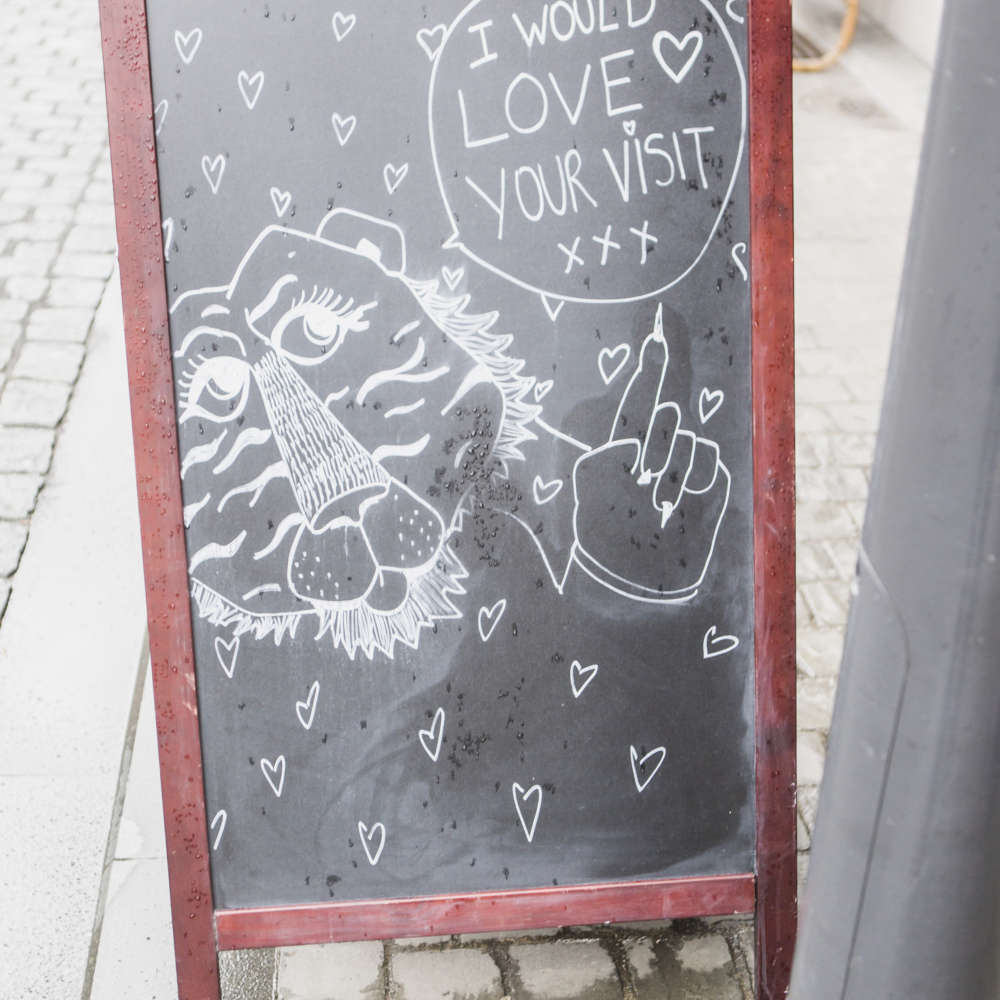 I WOULD
LOVE
YOUR VISIT
xxx